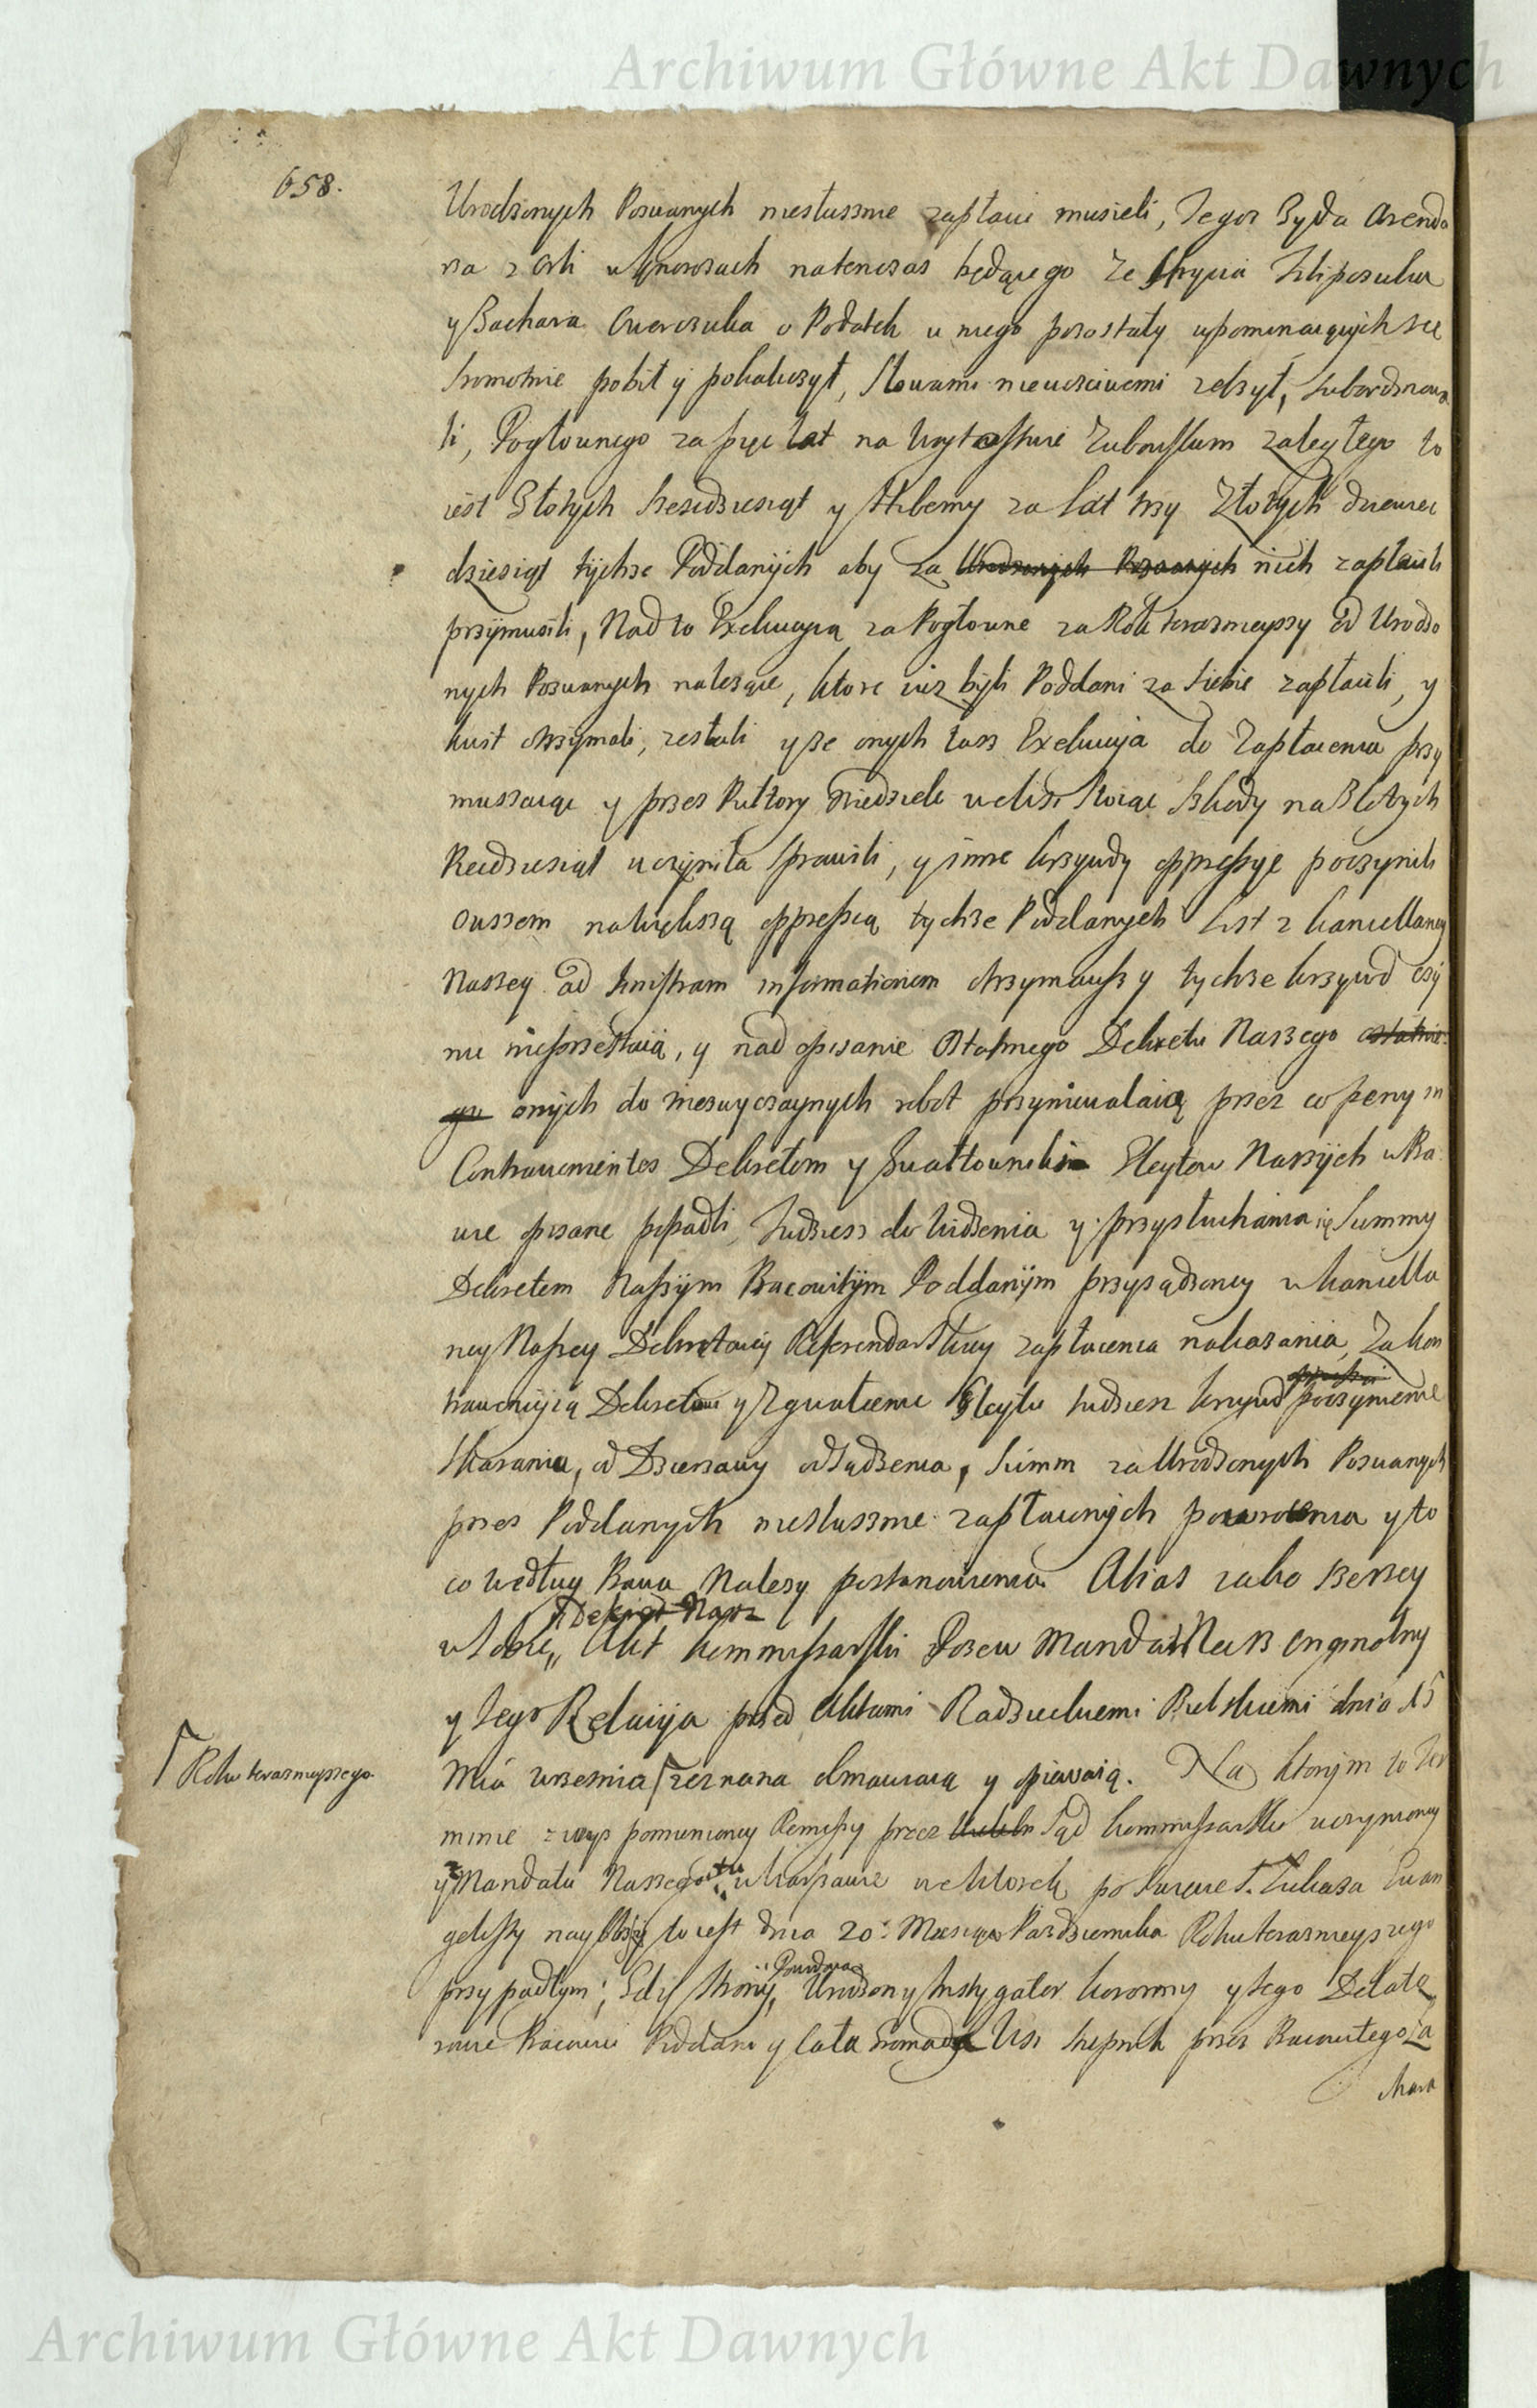 Archiwum Główne Akt Dawnych
658.
Urodzonych Pozwanych niesłusznie zapłacić musieli, Jegoż Zyda Arenda
rza z Orli w natenczas będącego ze
y Zachara o Podatek u niego pozostały upominaiących się
sromotnie pobił y pokaliczył, słowami nieuczciwemi zelżył, subordynowa
li, Pogłownego za pięć lat na zaległego to
iest Złotych sześćdziesiąt y Hyberny za lat trzy Złotych dziewięć
dziesiąt tychże Poddanych aby za Urodzonych Pozwanych nich zapłacili
przymusili, Nad to Exekucyią za Pogłowne za Rok teraznieyszy od Urodzo
nych Pozwanych należące, ktore iuż byli Poddani za siebie zapłacili, y
kwit otrzymali, zesłali y że onych taż Exekucyja do zapłacenia przy
muszaiąc y przez Pułtory Niedziele w stoiąc szkody na Złotych
uczyniła sprawili, y inne krzywdy oppressye poczynili
owszem większą oppressią tychże Poddanych List z Kancellaryi
Naszey ad sinistram informationem otrzymawszy tychże krzywd czy
nić nieprzestaią, y nad opisanie ostatniego Dekretu Naszego ostatnie
go onych do niezwyczaynych robot przyniewalaią przez co peny in
Contravenientes Dekretom y Gwałtownikom Gleytow Naszych w Pra
wie opisane popadli, Tudziesz do widzenia y przysłuchania się Summy
Dekretem Naszym Pracowitym Poddanym przysądzoney w Kancella
ryi Naszey Dekretowey Referendarskiey zapłacenia nakazania, za kon
trawencyią Dekretow y Zgwałcenie Gleytu tudziesz krzywd poczynienie
Skarania, od Dzierzawy odsądzenia, Summ za Urodzonych Pozwanych
przez Poddanych niesłusznie zapłaconych powrocenia y to
co według Prawa Nalezy postanowienia. Alias iako szerzey
w sobie, Akt Kommissarski Pozew Mandat Nasz oryginalny
y Jego Relacyja przed Aktami Radzieckiemi dnia 15
Mca wrzesnia zeznana obmawiaią y opiewaią. Na ktorym to Ter
Roku teraznieyszego.
minie z wysz pomienioney Remissy przez Sąd Kommissarski uczynioney
y Mandatu Naszego tu w Warszawie we Wtorek po Swięcie S. Łukasza Ewan
gelisty to iest dnia 20. Miesiąca Pazdziernika Roku teraznieyszego
przypadłym; Gdy Strony, Powodowa Urodzony Instygator koronny y Jego Delato
rowie Pracowici Poddani y cała Gromada Wsi przez Pracowitego Za
chara
Archiwum Główne Akt Dawnych